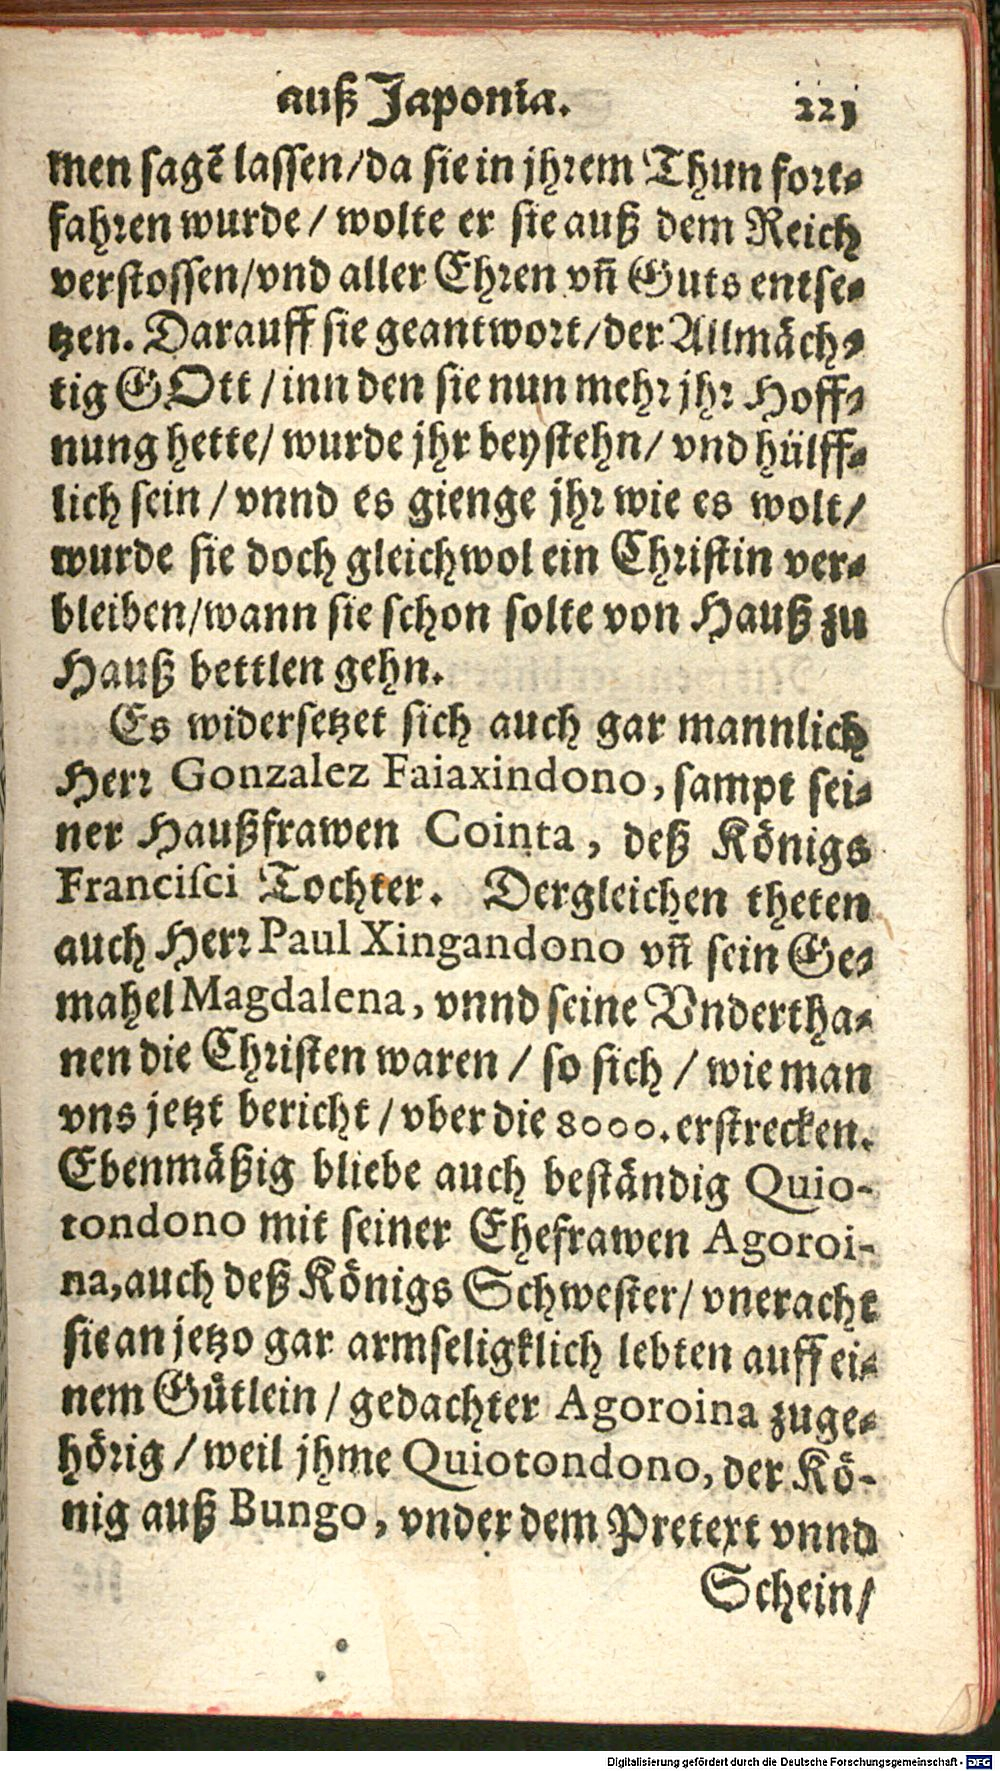 auß Japonia. 221
men sagẽ lassen/da sie in jhrem Thun fort-
fahren wurde / wolte er sie auß dem Reich
verstossen/vnd aller Ehren vñ Guts entse-
tzen. Darauff sie geantwort/der Allmäch-
tig GOtt / inn den sie nun mehr jhr Hoff-
nung hette/ wurde jhr beystehn/ vnd hülff-
lich sein / vnnd es gienge jhr wie es wolt/
wurde sie doch gleichwol ein Christin ver-
bleiben/wann sie schon solte von Hauß zu
Hauß bettlen gehn.
Es widersetzet sich auch gar mannlich
Herr Gonzalez Faiaxindono, sampt sei-
ner Haußfrawen Cointa, deß Königs
Francisci Tochter. Dergleichen theten
auch Herr Paul Xingandono vñ sein Ge-
mahel Magdalena, vnnd seine Vndertha-
nen die Christen waren / so sich / wie man
vns jetzt bericht / vber die 8000. erstrecken.
Ebenmäßig bliebe auch beständig Quio-
tondono mit seiner Ehefrawen Agoroi-
na, auch deß Königs Schwester/ vneracht
sie an jetzo gar armseligklich lebten auff ei-
nem Gütlein / gedachter Agoroina zuge-
hörig / weil jhme Quiotondono, der Kö-
nig auß Bungo, vnder dem Pretext vnnd
Schein/
Digitalisierung gefördert durch die Deutsche Forschungsgemeinschaft - DFG